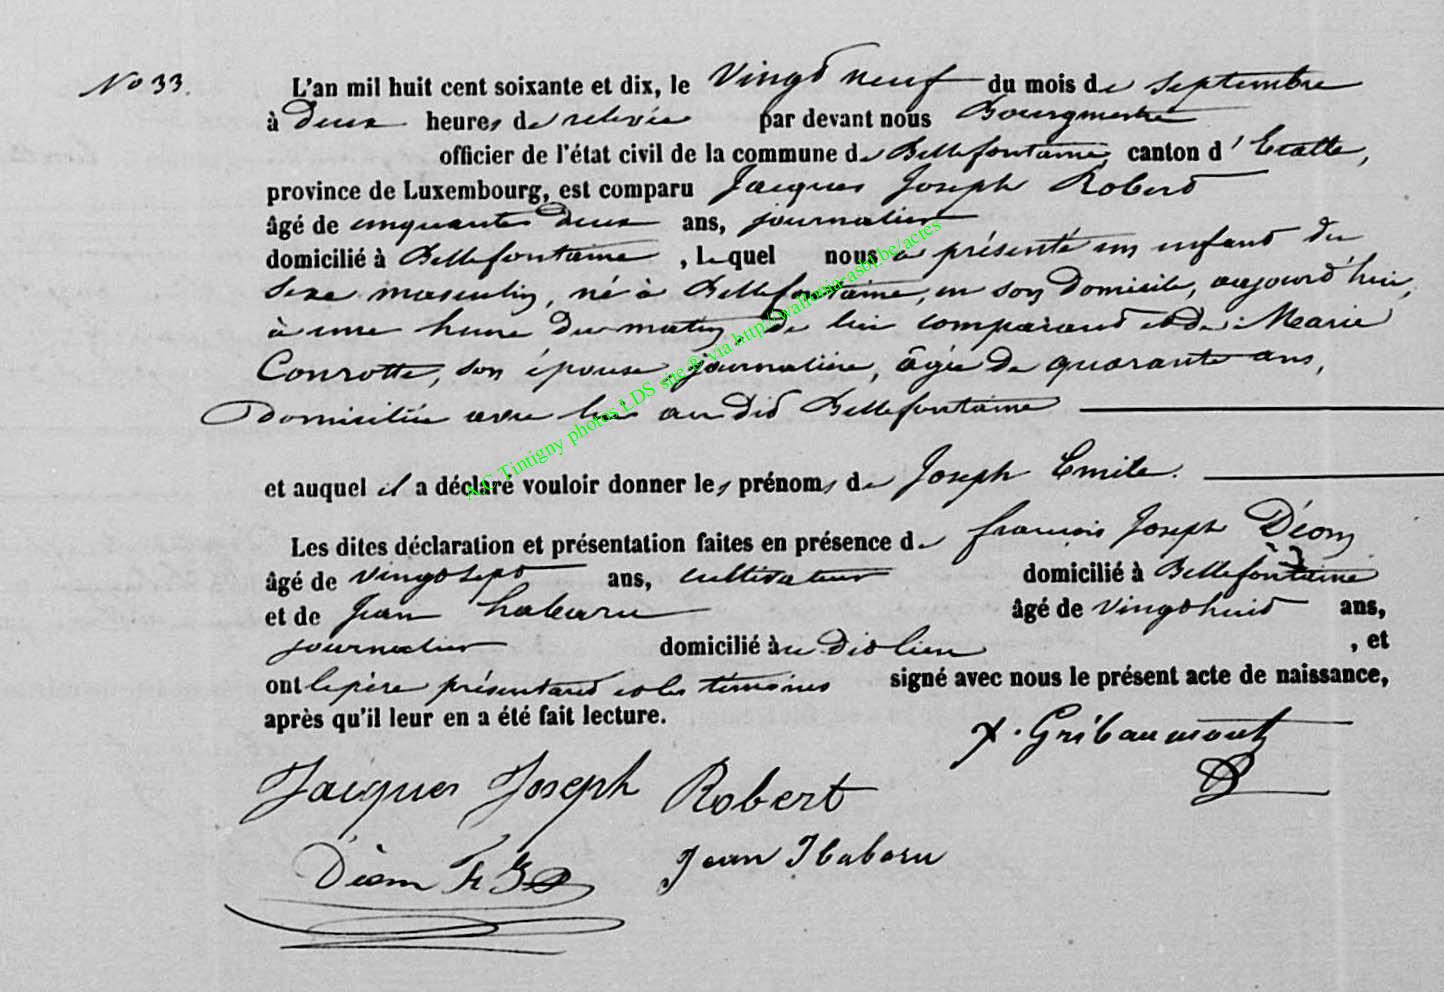 No 33.
L'an mil huit cent soixante et dix, le Vingt neuf du mois de septembre
à deux heures de relevée par devant nous Bourgmestre
officier de l'état civil de la commune de Bellefontaine, canton d'Etalle,
province de Luxembourg, est comparu Jacques Joseph Robert
âgé de cinquante deux ans, journalier
domicilié à Bellefontaine, lequel nous a présenté un enfant du
sexe masculin, né à Bellefontaine, en son domicile, aujourd'hui,
à une heure du matin de lui comparant et de Marie
Conrotte, son épouse, journalière, âgée de quarante ans,
domiciliée avec lui au dit Bellefontaine
et auquel il a déclaré vouloir donner les prénoms de Joseph Emile.
Les dites déclaration et présentation faites en présence de françois Joseph Déom
âgé de vingt sept ans, cultivateur domicilié à Bellefontaine
et de Jean habaru âgé de vingt huit ans,
journalier domicilié au dit lieu, et
ont le père présentant et les témoins signé avec nous le présent acte de naissance,
après qu'il leur en a été fait lecture.
Gribaumont
Jacques Joseph Robert
Déom Fs Jh Jean Habaru
A.C Tintigny photos LDS site & via http://wallonia-asbl.be/actes